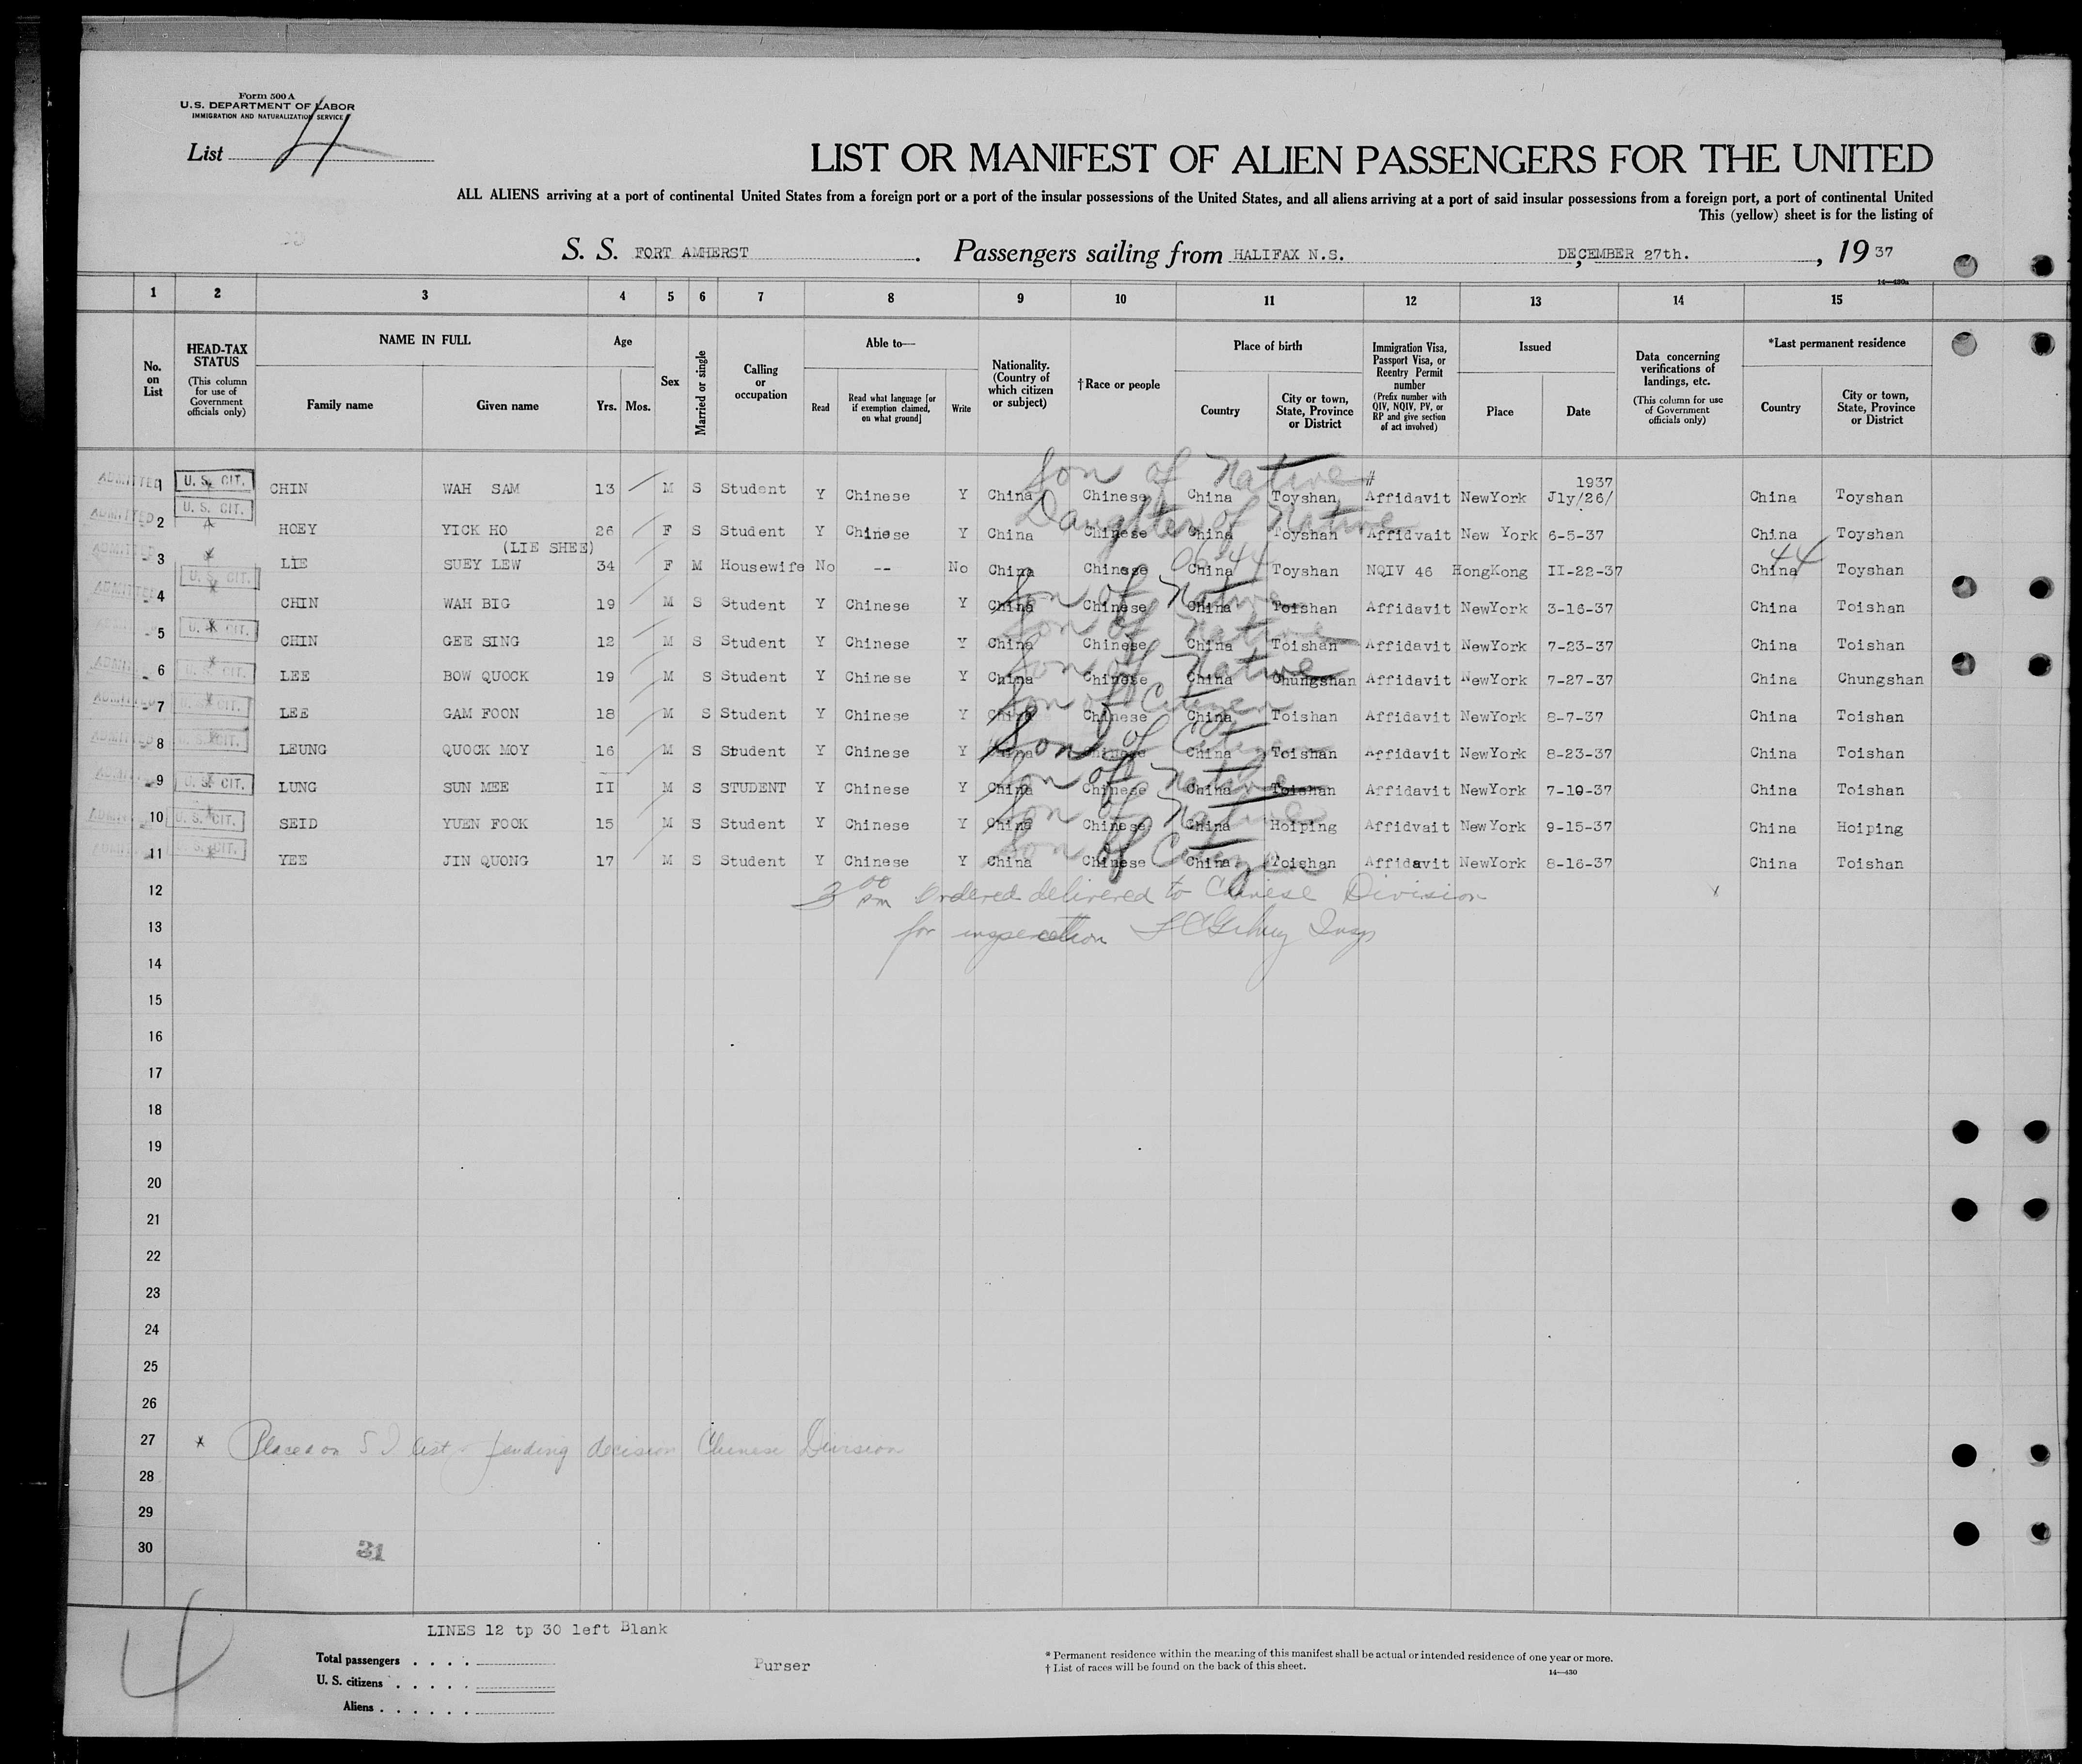 Form 500 A
U.S. DEPARTMENT OF LABOR
IMMIGRATION AND NATURALIZATION SERVICE
List 4
LIST OR MANIFEST OF ALIEN PASSENGERS FOR THE UNITED
ALL ALIENS arriving at a port of continental United States from a foreign port or a port of the insular possessions of the United States, and all aliens arriving at a port of said insular possessions from a foreign port, a port of continental United
This (yellow) sheet is for the listing of
S. S. FORT AMHERST. Passengers sailing from HALIFAX N.S. DECEMBER 27th., 19 37
14—430a
1 2 3 4 5 6 7 8 9 10 11 12 13 14 15
No. on List
HEAD-TAX STATUS
(This column for use of Government officials only)
NAME IN FULL
Family name Given name
Age
Yrs. Mos.
Sex
Married or single
Calling or occupation
Able to—
Read Read what language [or if exemption claimed, on what ground] Write
Nationality. (Country of which citizen or subject)
†Race or people
Place of birth
Country City or town, State, Province or District
Immigration Visa, Passport Visa, or Reentry Permit number
(Prefix number with QIV, NQIV, PV, or RP and give section of act involved)
Issued
Place Date
Data concerning verifications of landings, etc.
(This column for use of Government officials only)
*Last permanent residence
Country City or town, State, Province or District
Son of Native # 1937
ADMITTED 1 U. S. CIT. CHIN WAH SAM 13 M S Student Y Chinese Y China Chinese China Toyshan Affidavit NewYork Jly/26/ China Toyshan
Daughter of Native
ADMITTED 2 U. S. CIT. HOEY YICK HO 26 F S Student Y Chinese Y China Chinese China Toyshan Affidvait New York 6-5-37 China Toyshan
(LIE SHEE)
ADMITTED 3 LIE SUEY LEW 34 F M Housewife No -- No China Chinese China Toyshan NQIV 46 HongKong II-22-37 China 44 Toyshan
Son of Native
ADMITTED 4 U. S. CIT. CHIN WAH BIG 19 M S Student Y Chinese Y China Chinese China Toishan Affidavit NewYork 3-16-37 China Toishan
Son of Native
5 U. S. CIT. CHIN GEE SING 12 M S Student Y Chinese Y China Chinese China Toishan Affidavit NewYork 7-23-37 China Toishan
Son of Native
ADMITTED 6 U. S. CIT. LEE BOW QUOCK 19 M S Student Y Chinese Y China Chinese China Chungshan Affidavit NewYork 7-27-37 China Chungshan
Son of Citizen
ADMITTED 7 U. S. CIT. LEE GAM FOON 18 M S Student Y Chinese Y China Chinese China Toishan Affidavit NewYork 8-7-37 China Toishan
Son of Citizen
ADMITTED 8 U. S. CIT. LEUNG QUOCK MOY 16 M S Student Y Chinese Y China Chinese China Toishan Affidavit NewYork 8-23-37 China Toishan
Son of Native
ADMITTED 9 U. S. CIT. LUNG SUN MEE II M S STUDENT Y Chinese Y China Chinese China Toishan Affidavit NewYork 7-10-37 China Toishan
Son of Native
ADMITTED 10 U. S. CIT. SEID YUEN FOOK 15 M S Student Y Chinese Y China Chinese China Hoiping Affidvait NewYork 9-15-37 China Hoiping
Son of Citizen
ADMITTED 11 U. S. CIT. YEE JIN QUONG 17 M S Student Y Chinese Y China Chinese China Toishan Affidavit NewYork 8-16-37 China Toishan
12 3 00 pm Ordered delivered to Chinese Division
13 for inspection Insp
14
15
16
17
18
19
20
21
22
23
24
25
26
27 * Placed on S I list pending decision Chinese Division
28
29
30
31
4
LINES 12 tp 30 left Blank
Total passengers
U. S. citizens
Aliens
Purser
* Permanent residence within the meaning of this manifest shall be actual or intended residence of one year or more.
† List of races will be found on the back of this sheet.
14—430